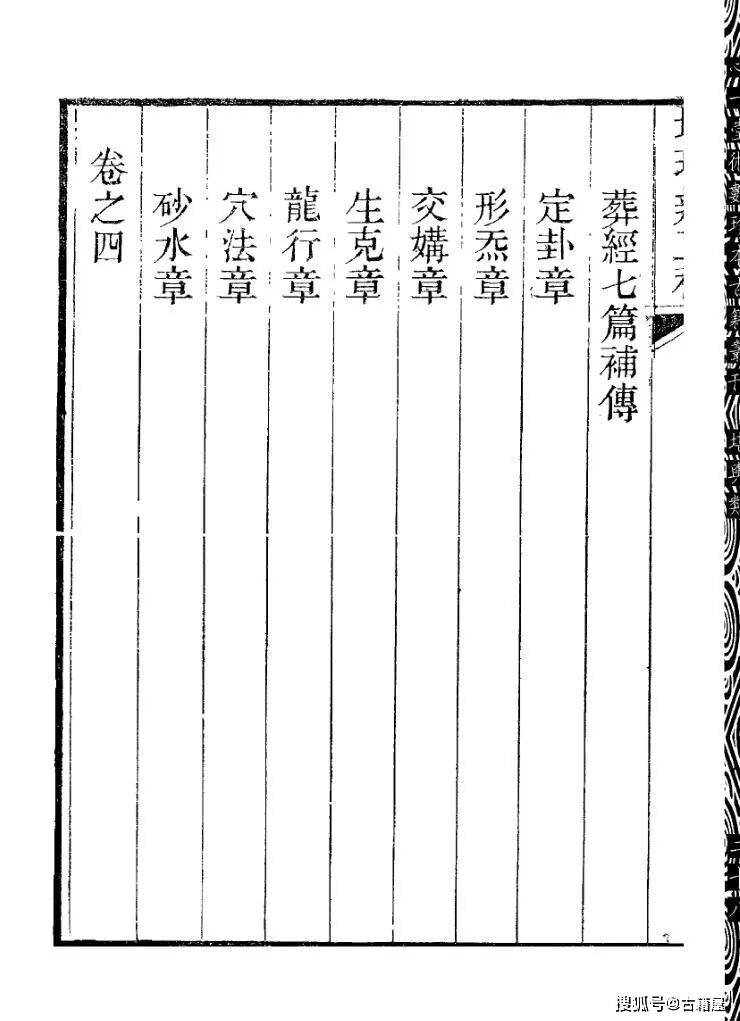 葬經七篇補傳
定卦章
形炁章
交媾章
生克章
龍行章
穴法章
砂水章
卷之四
搜狐号@古籍屋